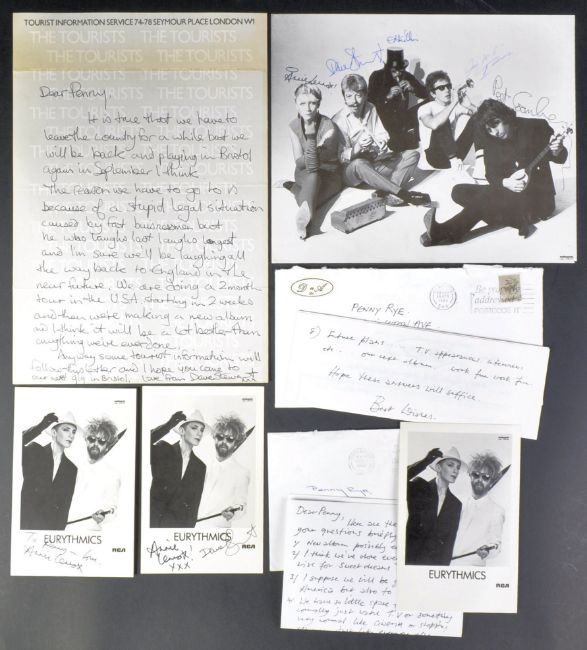 TOURIST INFORMATION SERVICE 74-78 SEYMOUR PLACE LONDON W1
THE TOURISTS THE TOURISTS
Dear Penny,
It is true that we have to
leave the country for a while but we
will be back and playing in Bristol
again in September I think.
The reason we have to go to is
because of a stupid legal situation
caused by fat businessmen but
he who laughs last laughs longest
and I'm sure we'll be laughing all
the way back to England in the
near future. We are doing a 2 month
tour in the U.S.A. starting in 2 weeks
and then were making a new album
and I think it will be a lot better than
anything we've ever done.
Anyway some tourist information will
follow this letter and I hope you came to
our last gig in Bristol. love from Dave Stewart
Annie Lennox
Dave Stewart
Peet Coombes
D A
PENNY RYE.
Be properly
addressed
POSTCODE IT
5) Future plans... T.V appearances interviews
etc. our next album. work fun work fun.
Hope these answers will suffice.
Best Wishes.
Penny Rye.
Dear Penny,
Here are the
your questions briefly
1) New album possibly
2) I think we've done
video for sweet dreams
3) I suppose we will be
America but also to
4) We have so little space
normally just watch T.V or something
very normal like cinema or shopping
EURYTHMICS
To Penny love
Annie Lennox
RCA
EURYTHMICS
Annie
Lennox
xxx
Dave Stewart
RCA
EURYTHMICS
RCA